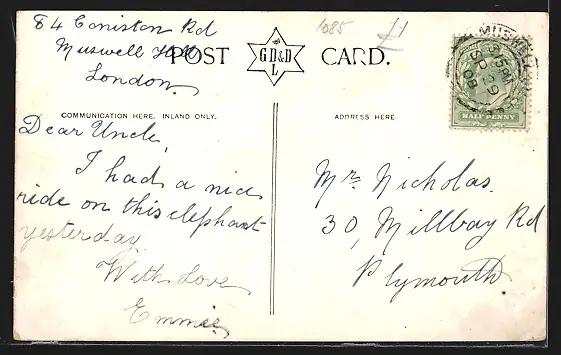 84 Coniston Rd
Muswell Hill
London.
POST CARD.
GD&D
L
1085
£1
MUSWELL
3.15 PM
SP 29
08
HALFPENNY
COMMUNICATION HERE, INLAND ONLY.
ADDRESS HERE
Dear Uncle,
I had a nice
ride on this elephant
yesterday.
With Love
Emmie
Mr. Nicholas.
30, Millbay Rd
Plymouth